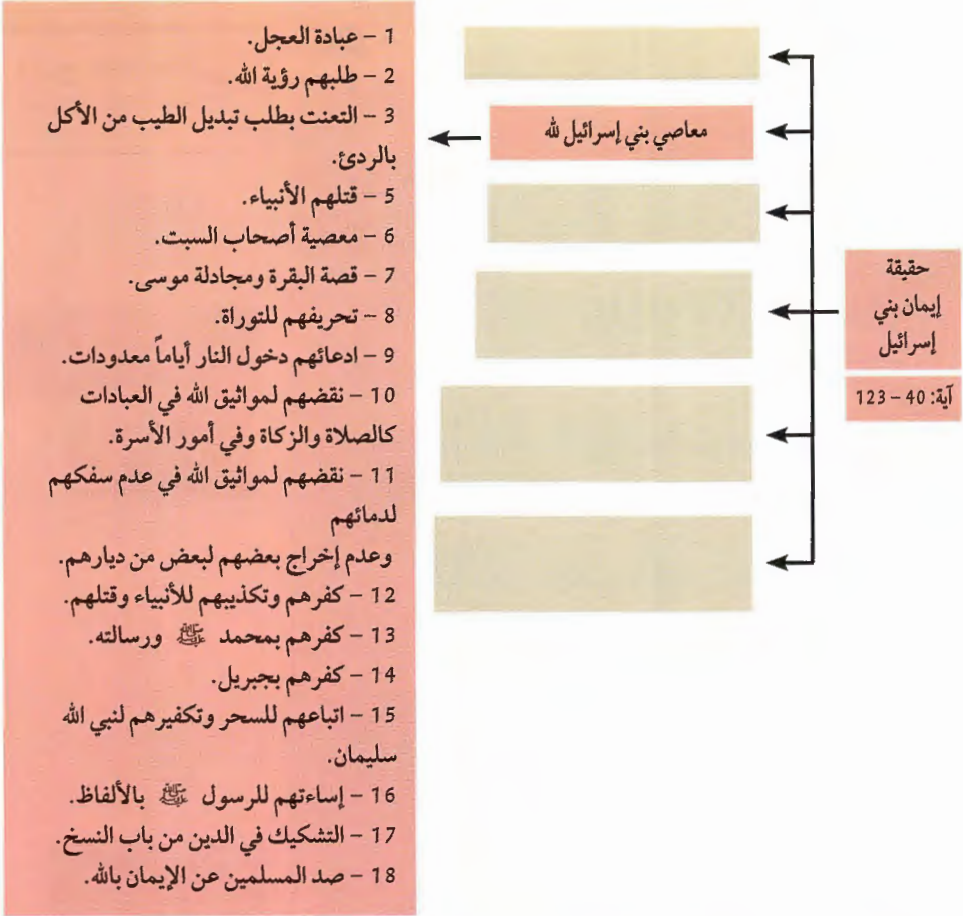 حقيقة
إيمان بني
إسرائيل
آية: 40 – 123
معاصي بني إسرائيل لله
1 – عبادة العجل.
2 – طلبهم رؤية الله.
3 – التعنت بطلب تبديل الطيب من الأكل
بالردئ.
5 – قتلهم الأنبياء.
6 – معصية أصحاب السبت.
7 – قصة البقرة ومجادلة موسى.
8 – تحريفهم للتوراة.
9 – ادعائهم دخول النار أياماً معدودات.
10 – نقضهم لمواثيق الله في العبادات
كالصلاة والزكاة وفي أمور الأسرة.
11 – نقضهم لمواثيق الله في عدم سفكهم
لدمائهم
وعدم إخراج بعضهم لبعض من ديارهم.
12 – كفرهم وتكذيبهم للأنبياء وقتلهم.
13 – كفرهم بمحمد ﷺ ورسالته.
14 – كفرهم بجبريل.
15 – اتباعهم للسحر وتكفيرهم لنبي الله
سليمان.
16 – إساءتهم للرسول ﷺ بالألفاظ.
17 – التشكيك في الدين من باب النسخ.
18 – صد المسلمين عن الإيمان بالله.